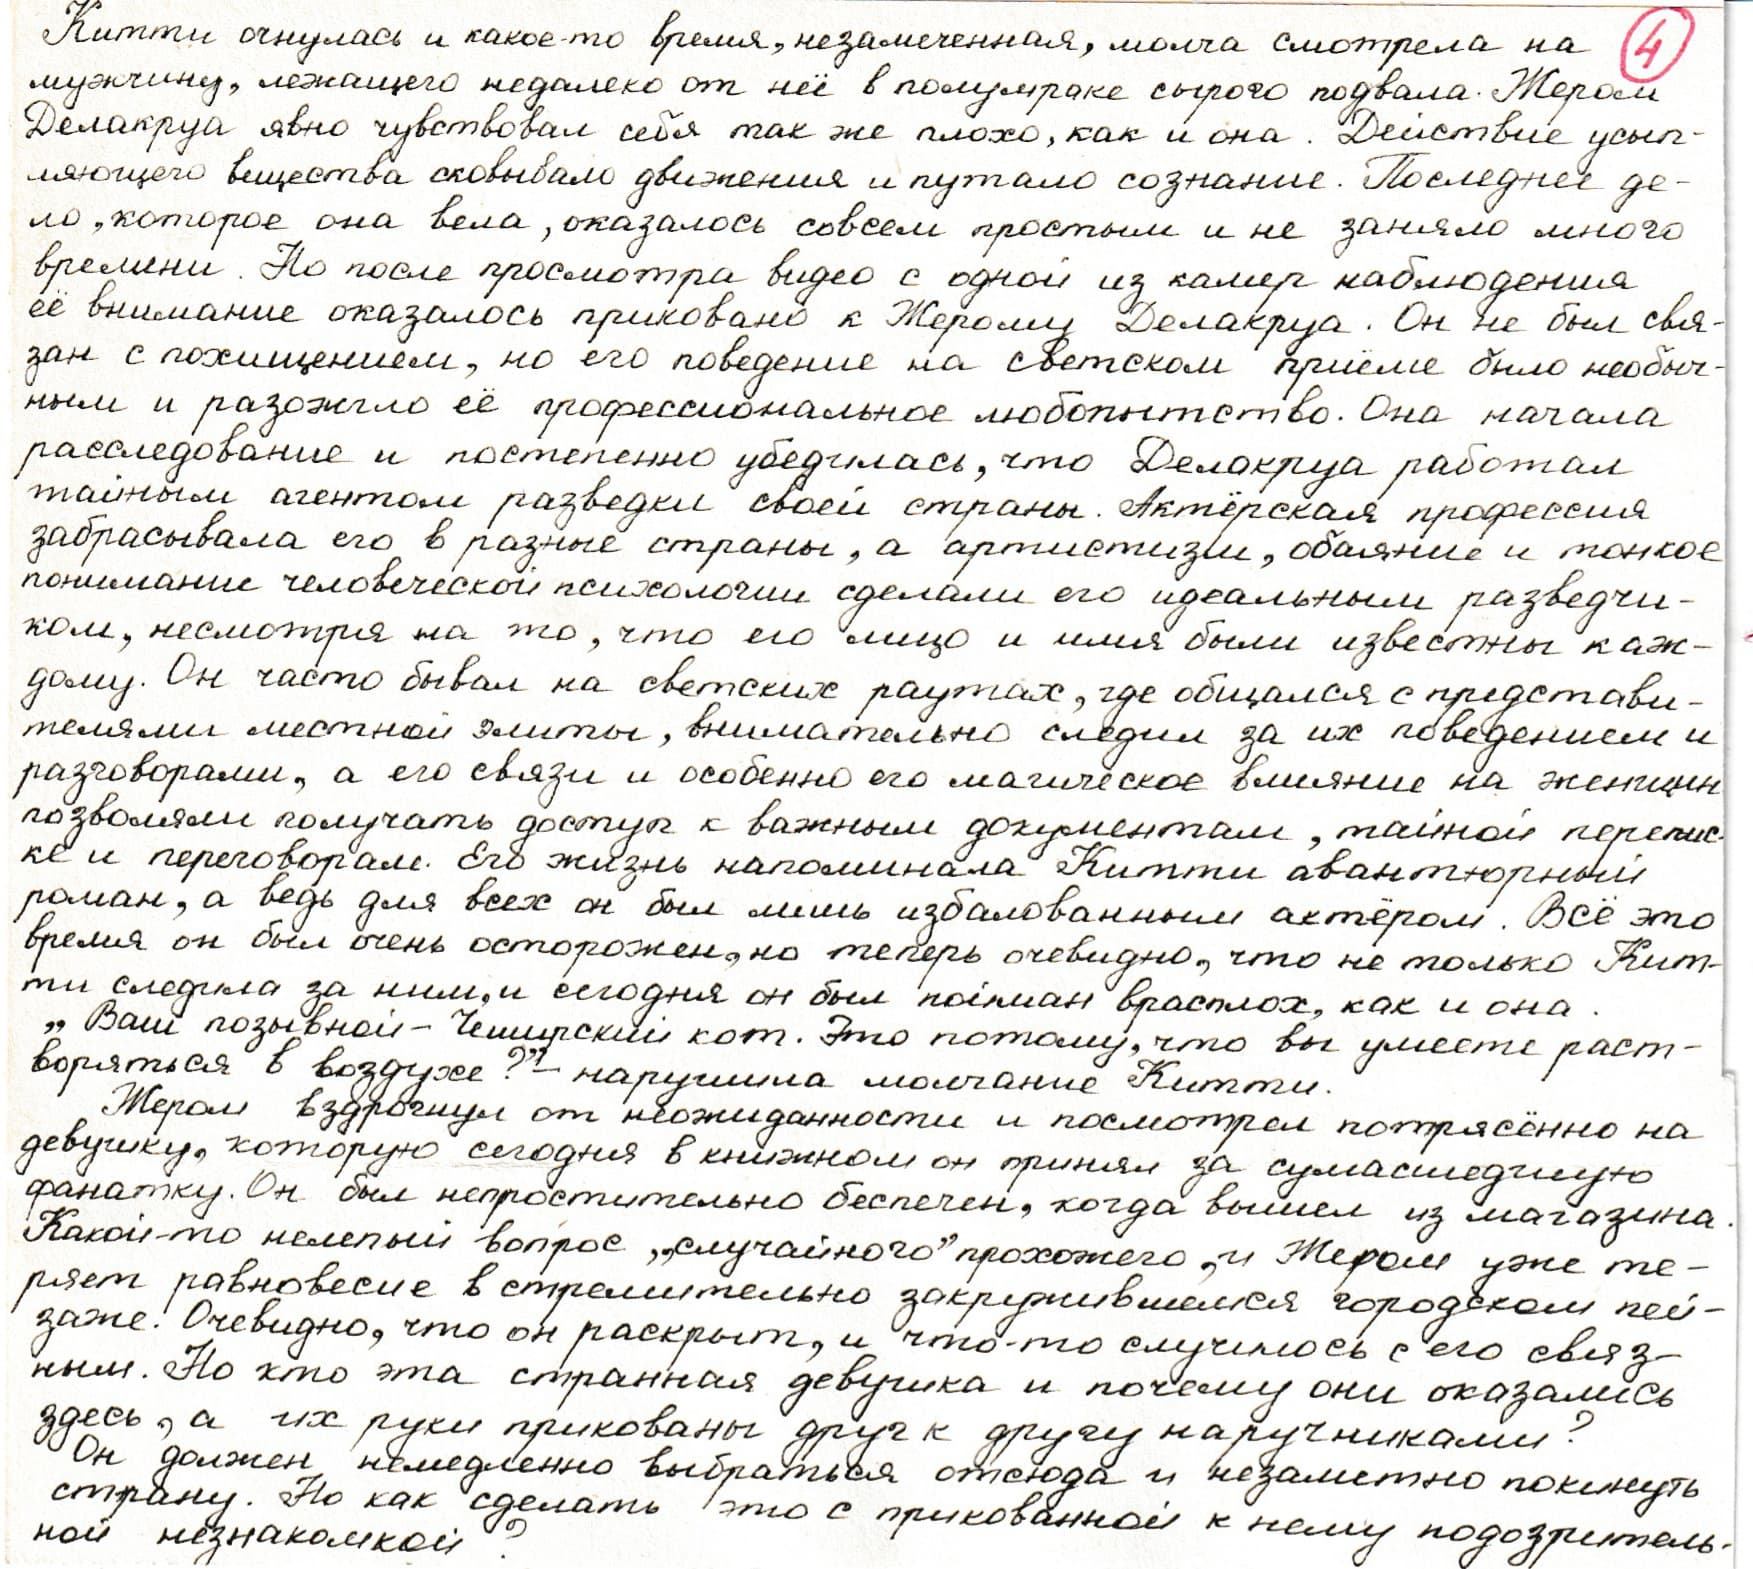 Китти очнулась и какое-то время, незамеченная, молча смотрела на 4
мужчину, лежащего недалеко от неё в полумраке сырого подвала. Жером
Делакруа явно чувствовал себя так же плохо, как и она. Действие усып-
ляющего вещества сковывало движения и путало сознание. Последнее де-
ло, которое она вела, оказалось совсем простым и не заняло много
времени. Но после просмотра видео с одной из камер наблюдения
её внимание оказалось приковано к Жерому Делакруа. Он не был свя-
зан с похищением, но его поведение на светском приёме было необыч-
ным и разожгло её профессиональное любопытство. Она начала
расследование и постепенно убедилась, что Делакруа работал
тайным агентом разведки своей страны. Актёрская профессия
забрасывала его в разные страны, а артистизм, обаяние и тонкое
понимание человеческой психологии сделали его идеальным разведчи-
ком, несмотря на то, что его лицо и имя были известны каж-
дому. Он часто бывал на светских раутах, где общался с представи-
телями местной элиты, внимательно следил за их поведением и
разговорами, а его связи и особенно его магическое влияние на женщин
позволяли получать доступ к важным документам, тайной перепис-
ке и переговорам. Его жизнь напоминала Китти авантюрный
роман, а ведь для всех он был лишь избалованным актёром. Всё это
время он был очень осторожен, но теперь очевидно, что не только Кит-
ти следила за ним, и сегодня он был пойман врасплох, как и она.
„Ваш позывной – Чеширский кот. Это потому, что вы умеете раст-
воряться в воздухе?” – нарушила молчание Китти.
Жером вздрогнул от неожиданности и посмотрел потрясённо на
девушку, которую сегодня в книжном он принял за сумасшедшую
фанатку. Он был непростительно беспечен, когда вышел из магазина.
Какой-то нелепый вопрос „случайного” прохожего, и Жером уже те-
ряет равновесие в стремительно закружившемся городском пей-
заже. Очевидно, что он раскрыт, и что-то случилось с его связ-
ным. Но кто эта странная девушка и почему они оказались
здесь, а их руки прикованы друг к другу наручниками?
Он должен немедленно выбраться отсюда и незаметно покинуть
страну. Но как сделать это с прикованной к нему подозритель-
ной незнакомкой?